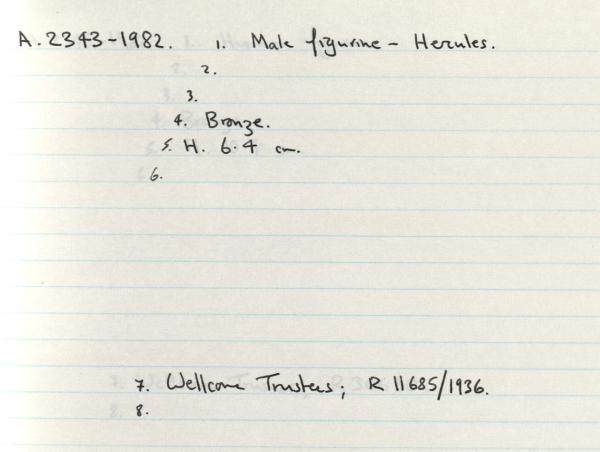 A.2343-1982. 1. Male figurine - Hercules.
2.
3.
4. Bronze.
5. H. 6.4 cm.
6.
7. Wellcome Trustees; R 11685/1936.
8.